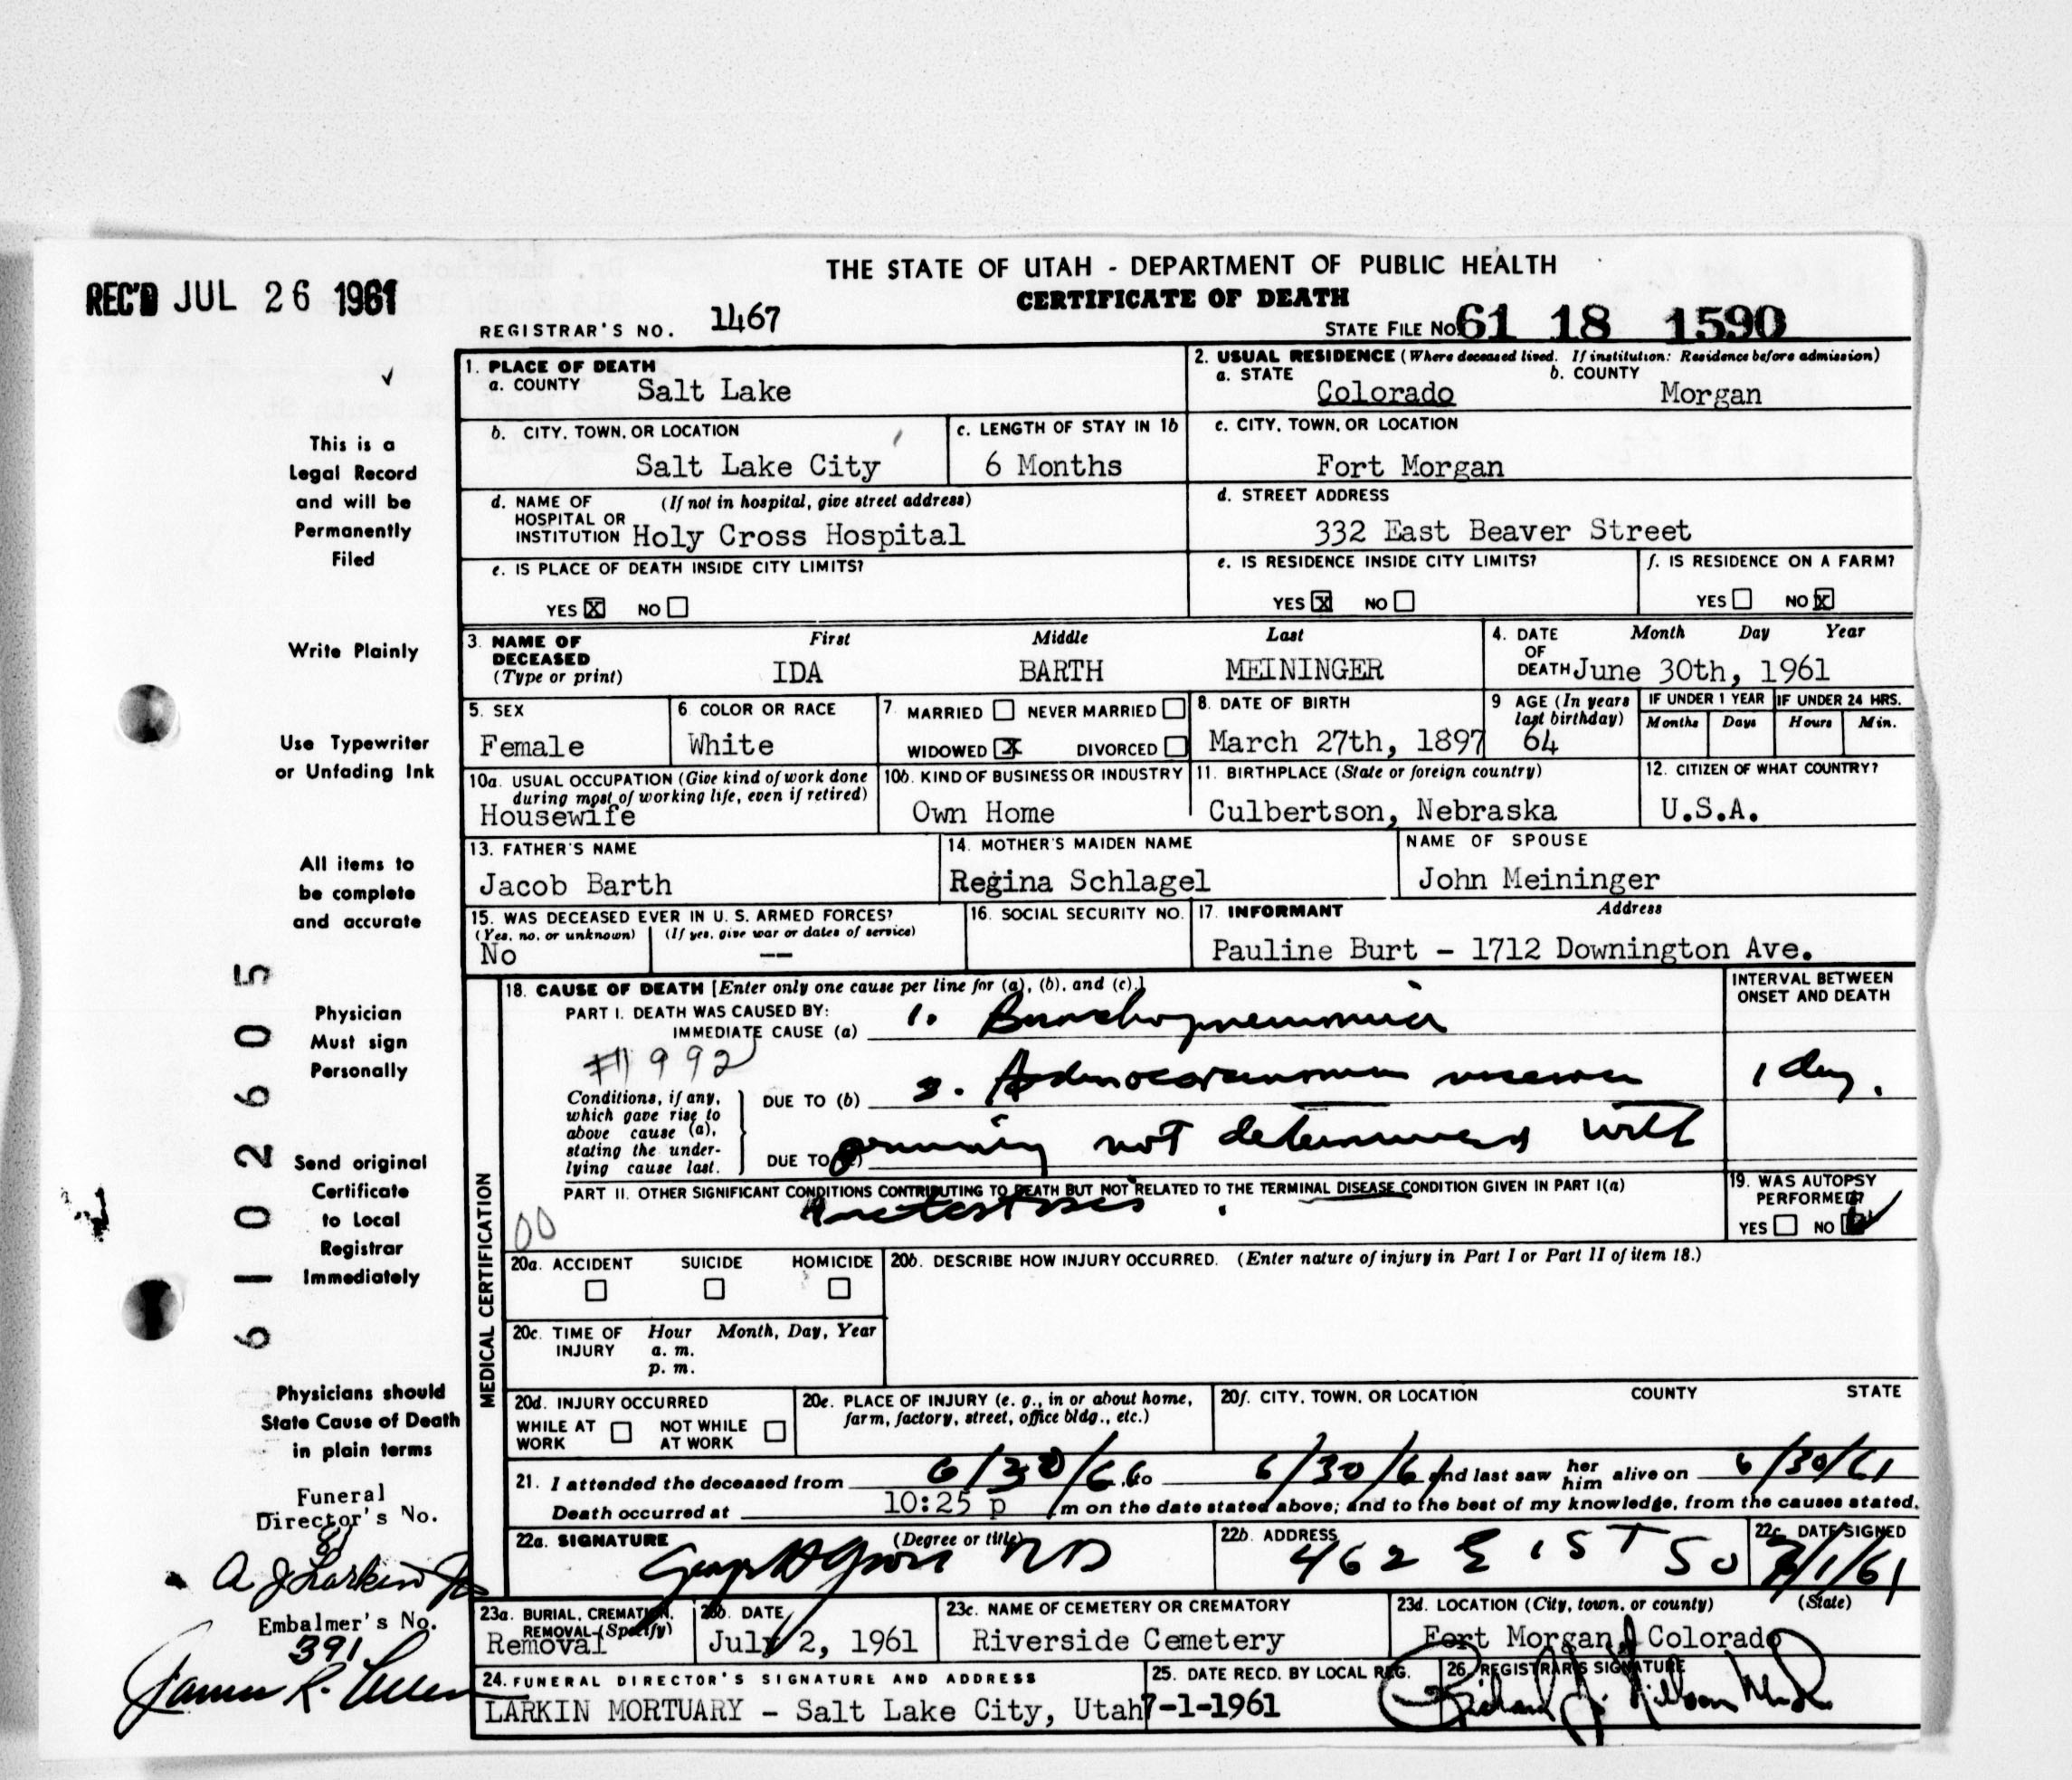 THE STATE OF UTAH - DEPARTMENT OF PUBLIC HEALTH
CERTIFICATE OF DEATH
REC'D JUL 26 1961
REGISTRAR'S NO. 1467
STATE FILE No. 61 18 1590
1. PLACE OF DEATH
a. COUNTY Salt Lake
2. USUAL RESIDENCE (Where deceased lived. If institution: Residence before admission)
a. STATE Colorado b. COUNTY Morgan
b. CITY, TOWN, OR LOCATION Salt Lake City
c. LENGTH OF STAY IN 1b 6 Months
c. CITY, TOWN, OR LOCATION Fort Morgan
d. NAME OF HOSPITAL OR INSTITUTION (If not in hospital, give street address) Holy Cross Hospital
d. STREET ADDRESS 332 East Beaver Street
e. IS PLACE OF DEATH INSIDE CITY LIMITS?
YES X NO
e. IS RESIDENCE INSIDE CITY LIMITS?
YES X NO
f. IS RESIDENCE ON A FARM?
YES NO X
3. NAME OF DECEASED (Type or print)
First Middle Last
IDA BARTH MEININGER
4. DATE OF DEATH Month Day Year
June 30th, 1961
5. SEX Female
6. COLOR OR RACE White
7. MARRIED NEVER MARRIED
WIDOWED X DIVORCED
8. DATE OF BIRTH March 27th, 1897
9 AGE (In years last birthday) 64
IF UNDER 1 YEAR Months Days
IF UNDER 24 HRS. Hours Min.
10a. USUAL OCCUPATION (Give kind of work done during most of working life, even if retired)
Housewife
10b. KIND OF BUSINESS OR INDUSTRY
Own Home
11. BIRTHPLACE (State or foreign country)
Culbertson, Nebraska
12. CITIZEN OF WHAT COUNTRY?
U.S.A.
13. FATHER'S NAME
Jacob Barth
14. MOTHER'S MAIDEN NAME
Regina Schlagel
NAME OF SPOUSE
John Meininger
15. WAS DECEASED EVER IN U. S. ARMED FORCES?
(Yes, no, or unknown) (If yes, give war or dates of service)
No --
16. SOCIAL SECURITY NO.
17. INFORMANT Address
Pauline Burt - 1712 Downington Ave.
MEDICAL CERTIFICATION
18. CAUSE OF DEATH [Enter only one cause per line for (a), (b), and (c).]
INTERVAL BETWEEN ONSET AND DEATH
PART I. DEATH WAS CAUSED BY:
IMMEDIATE CAUSE (a) 1. Bronchopneumonia
992
Conditions, if any, which gave rise to above cause (a), stating the underlying cause last.
DUE TO (b) 2. Adenocarcinoma
1 day.
DUE TO (c) primary not determined with
PART II. OTHER SIGNIFICANT CONDITIONS CONTRIBUTING TO DEATH BUT NOT RELATED TO THE TERMINAL DISEASE CONDITION GIVEN IN PART I(a)
metastasis.
00
19. WAS AUTOPSY PERFORMED?
YES NO
20a. ACCIDENT SUICIDE HOMICIDE
20b. DESCRIBE HOW INJURY OCCURRED. (Enter nature of injury in Part I or Part II of item 18.)
20c. TIME OF INJURY Hour Month, Day, Year
a. m.
p. m.
20d. INJURY OCCURRED
WHILE AT WORK NOT WHILE AT WORK
20e. PLACE OF INJURY (e. g., in or about home, farm, factory, street, office bldg., etc.)
20f. CITY, TOWN, OR LOCATION COUNTY STATE
21. I attended the deceased from 6/30/ to 6/30/61 and last saw her him alive on 6/30/61
Death occurred at 10:25 p m on the date stated above; and to the best of my knowledge, from the causes stated.
22a. SIGNATURE (Degree or title) MD
22b. ADDRESS 462 E 1ST So
22c. DATE SIGNED 7/1/61
23a. BURIAL, CREMATION, REMOVAL (Specify)
Removal
23b. DATE
July 2, 1961
23c. NAME OF CEMETERY OR CREMATORY
Riverside Cemetery
23d. LOCATION (City, town, or county) (State)
Fort Morgan, Colorado
24. FUNERAL DIRECTOR'S SIGNATURE AND ADDRESS
LARKIN MORTUARY - Salt Lake City, Utah
25. DATE RECD. BY LOCAL REG.
7-1-1961
26. REGISTRAR'S SIGNATURE
Richard J.
This is a
Legal Record
and will be
Permanently
Filed
Write Plainly
Use Typewriter
or Unfading Ink
All items to
be complete
and accurate
Physician
Must sign
Personally
Send original
Certificate
to Local
Registrar
Immediately
Physicians should
State Cause of Death
in plain terms
Funeral
Director's No.
81
A J Larkin Jr
Embalmer's No.
391
James R.
6102605